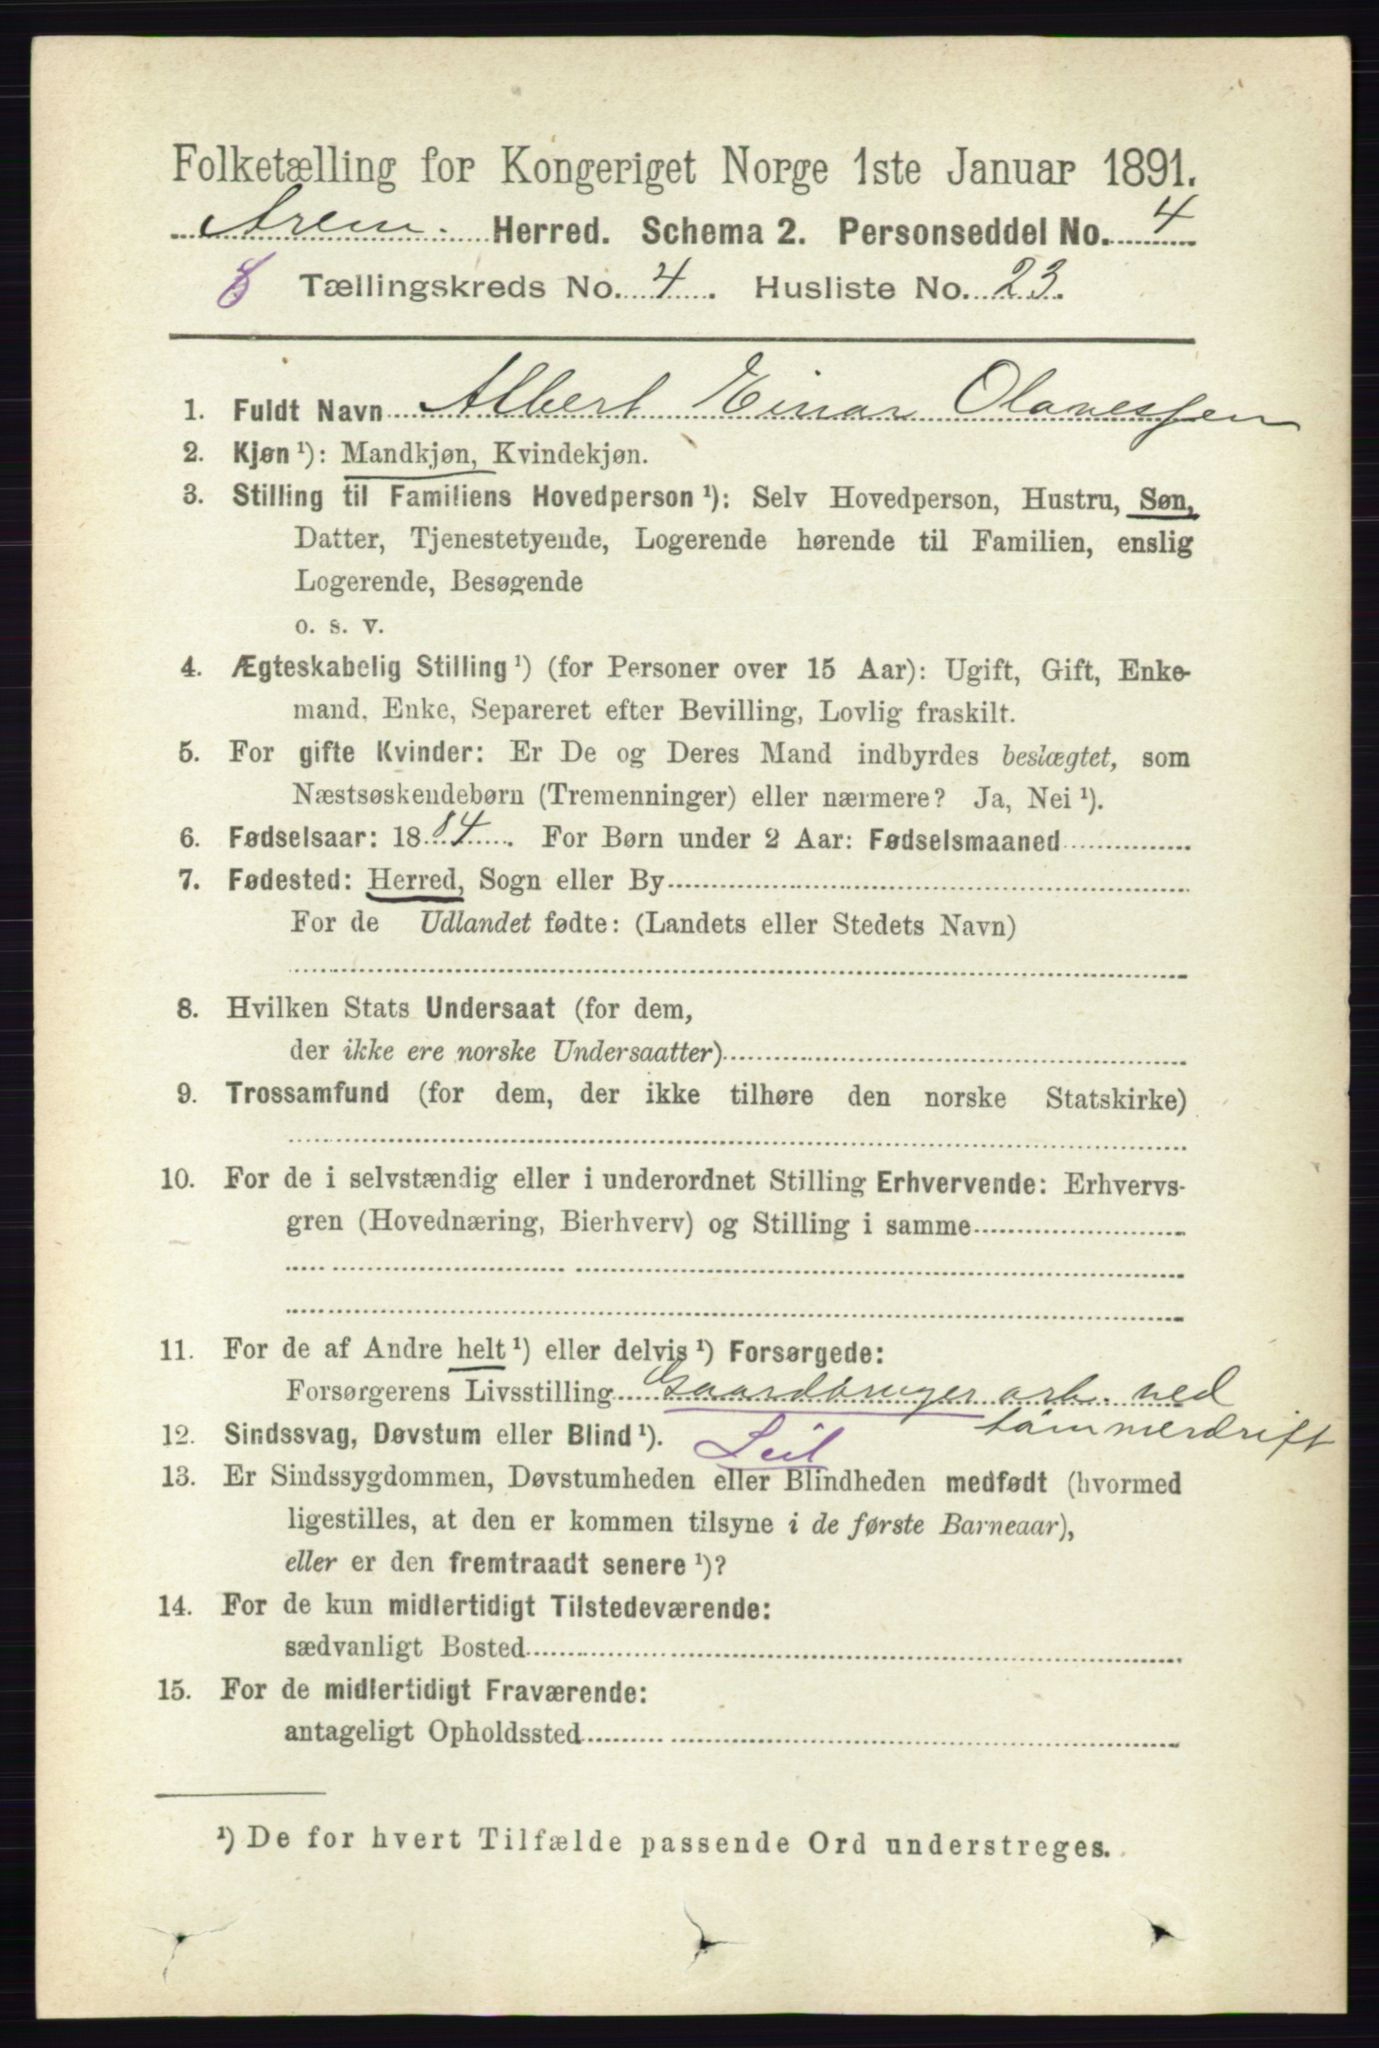 Folketælling for Kongeriget Norge 1ste Januar 1891.
Herred. Schema 2. Personseddel No. 4
8 Tællingskreds No. 4. Husliste No. 23.
1. Fuldt Navn Albert Einar Olavessen
2. Kjøn ¹): Mandkjøn, Kvindekjøn.
3. Stilling til Familiens Hovedperson ¹): Selv Hovedperson, Hustru, Søn,
Datter, Tjenestetyende, Logerende hørende til Familien, enslig
Logerende, Besøgende
o. s. v.
4. Ægteskabelig Stilling ¹) (for Personer over 15 Aar): Ugift, Gift, Enke-
mand, Enke, Separeret efter Bevilling, Lovlig fraskilt.
5. For gifte Kvinder: Er De og Deres Mand indbyrdes beslægtet, som
Næstsøskendebørn (Tremenninger) eller nærmere? Ja, Nei ¹).
6. Fødselsaar: 1884. For Børn under 2 Aar: Fødselsmaaned
7. Fødested: Herred, Sogn eller By
For de Udlandet fødte: (Landets eller Stedets Navn)
8. Hvilken Stats Undersaat (for dem,
der ikke ere norske Undersaatter)
9. Trossamfund (for dem, der ikke tilhøre den norske Statskirke)
10. For de i selvstændig eller i underordnet Stilling Erhvervende: Erhvervs-
gren (Hovednæring, Bierhverv) og Stilling i samme
11. For de af Andre helt ¹) eller delvis ¹) Forsørgede:
Forsørgerens Livsstilling Gaardbruger arb. ved
tømmerdrift
12. Sindssvag, Døvstum eller Blind ¹). Leil
13. Er Sindssygdommen, Døvstumheden eller Blindheden medfødt (hvormed
ligestilles, at den er kommen tilsyne i de første Barneaar),
eller er den fremtraadt senere ¹)?
14. For de kun midlertidigt Tilstedeværende:
sædvanligt Bosted
15. For de midlertidigt Fraværende:
antageligt Opholdssted
¹) De for hvert Tilfælde passende Ord understreges.